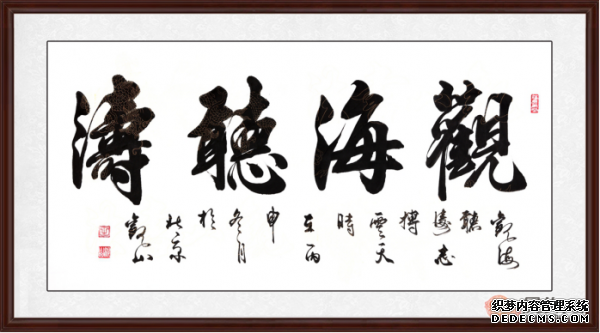 觀海聽濤
觀海
聽
濤志
搏
雲天
時
在丙
申
冬月
於
北京
觀山
织梦内容管理系统
DEDECMS.COM